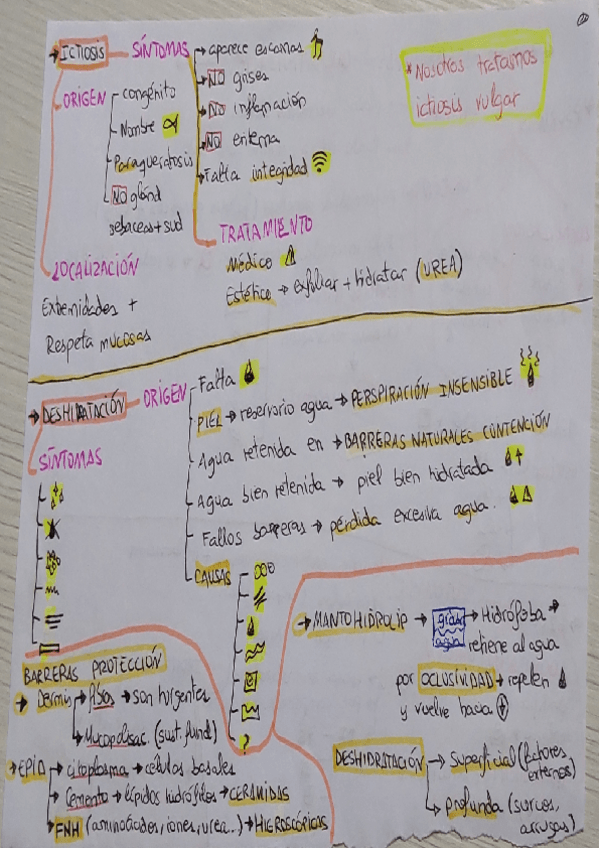 → ICTIOSIS
SÍNTOMAS
→ aparece escamas
→ NO grises
→ NO inflamación
→ NO eritema
→ Falta integridad
* Nosotros tratamos
ictiosis vulgar
ORIGEN
congénito
Nombre
Paraqueratosis
NO gland
sebaceas + sud
TRATAMIENTO
Médico
Estético → exfoliar + hidratar (UREA)
LOCALIZACIÓN
Extremidades +
Respeta mucosas
→ DESHIDRATACIÓN
ORIGEN
Falta
PIEL → reservorio agua → PERSPIRACIÓN INSENSIBLE
Agua retenida en → BARRERAS NATURALES CONTENCIÓN
Agua bien retenida → piel bien hidratada
Fallos barreras → pérdida excesiva agua.
CAUSAS
?
SÍNTOMAS
BARRERAS PROTECCIÓN
→ Dermis → → son turgentes
→ Mucopolisac. (sust. fund)
→ EPID → citoplasma → células basales
→ Cemento → lípidos hidrófilos → CERAMIDAS
→ FNH (aminoácidos, iones, urea..) → HIGROSCÓPICAS
→ MANTO HIDROLIP → grasa agua → Hidrófoba →
retiene al agua
por OCLUSIVIDAD → repelen
y vuelve hacia
DESHIDRATACIÓN → Superficial (factores
externos)
→ profunda (surcos,
arrugas)